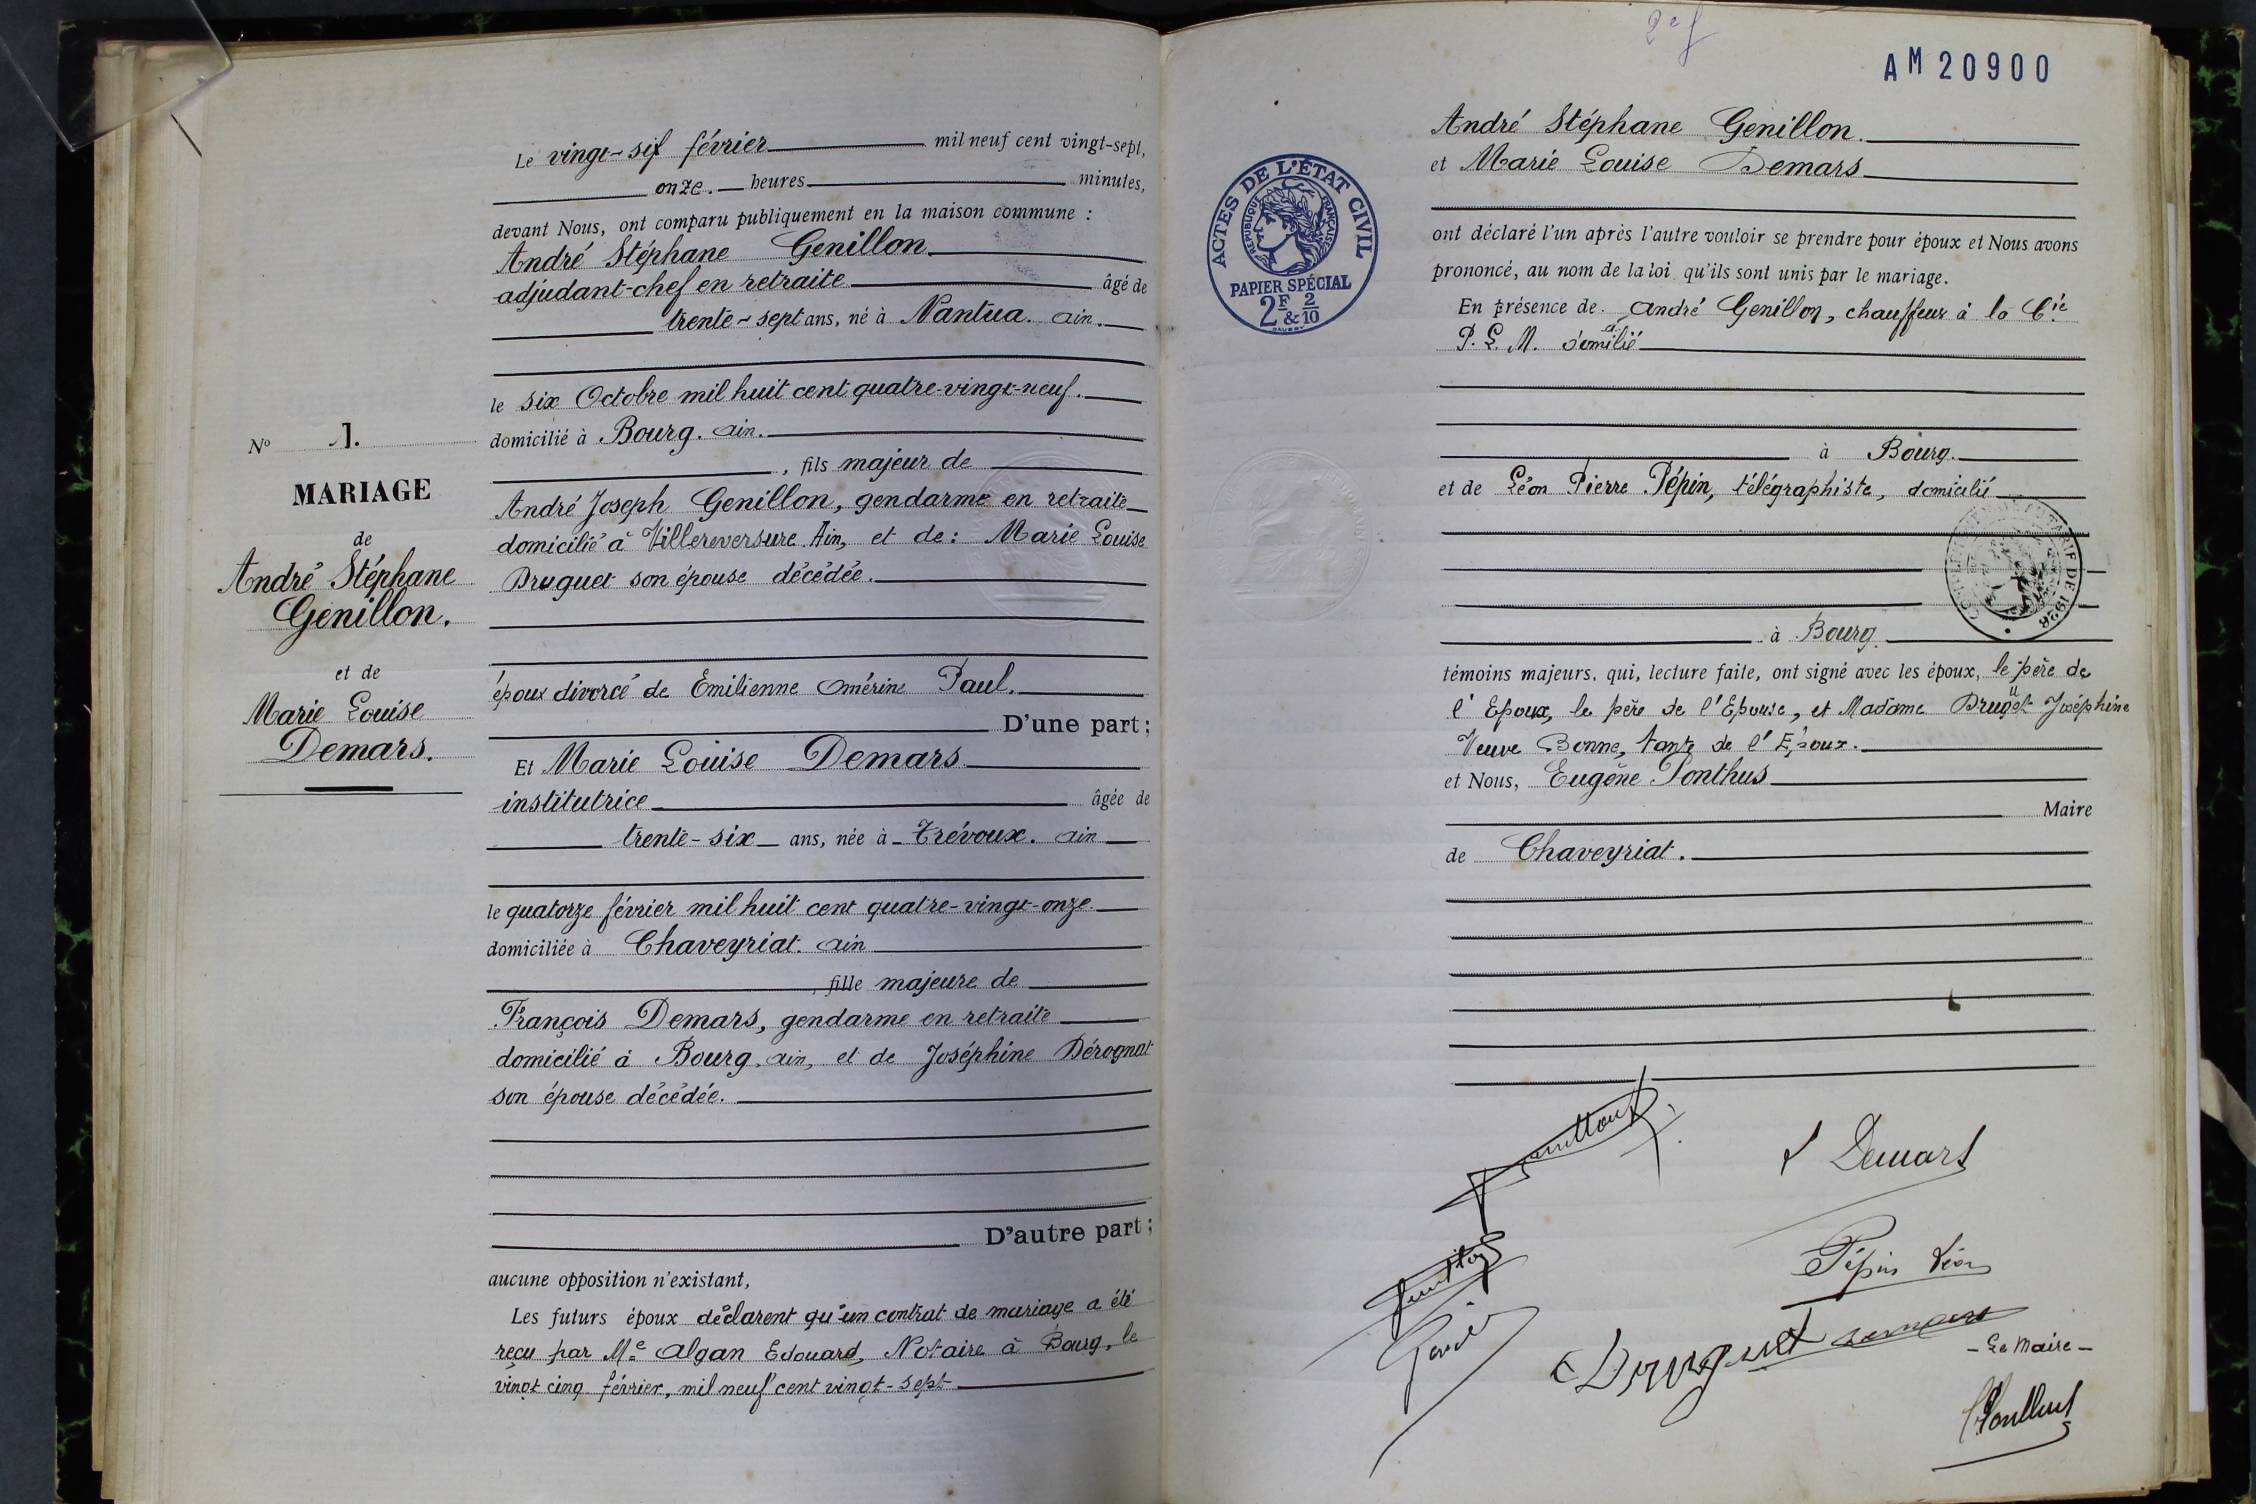 Le vingt-six février mil neuf cent vingt-sept,
onze. heures minutes,
devant Nous, ont comparu publiquement en la maison commune :
André Stéphane Genillon
adjudant-chef en retraite âgé de
trente-sept ans, né à Nantua. ain.
le six Octobre mil huit cent quatre-vingt-neuf.
domicilié à Bourg. ain.
, fils majeur de
André Joseph Genillon, gendarme en retraite
domicilié à Villereversure. Ain, et de : Marie Louise
Druguet son épouse décédée.
époux divorcé de Emilienne Omérine Paul.
D'une part ;
Et Marie Louise Demars
institutrice âgée de
trente-six ans, née à Trévoux. ain
le quatorze février mil huit cent quatre-vingt-onze
domiciliée à Chaveyriat. ain
, fille majeure de
François Demars, gendarme en retraite
domicilié à Bourg. ain, et de Joséphine Dérognat
son épouse décédée.
D'autre part ;
aucune opposition n'existant,
Les futurs époux déclarent qu'un contrat de mariage a été
reçu par Me Algan Edouard, Notaire à Bourg, le
vingt cinq février, mil neuf cent vingt-sept
No 1.
MARIAGE
de
André Stéphane
Genillon.
et de
Marie Louise
Demars.
2e f
AM 20900
ACTES DE L'ÉTAT CIVIL
RÉPUBLIQUE FRANÇAISE
PAPIER SPÉCIAL
2F & 2/10
André Stéphane Genillon.
et Marie Louise Demars
ont déclaré l'un après l'autre vouloir se prendre pour époux et Nous avons
prononcé, au nom de la loi qu'ils sont unis par le mariage.
En présence de André Genillon, chauffeur à la Cie
P. L. M. domilié
à Bourg.
et de Léon Pierre Pépin, télégraphiste, domicilié
DE 1926
à Bourg.
témoins majeurs, qui, lecture faite, ont signé avec les époux, le père de
l'Epoux, le père de l'Epouse, et Madame Druguet Joséphine
Veuve Bonne, tante de l'Epoux.
et Nous, Eugène Ponthus
Maire
de Chaveyriat.
Genillon
Demars
Genillon
Pépin Léon
Druguet
Demars
- Le Maire -
Ponthus